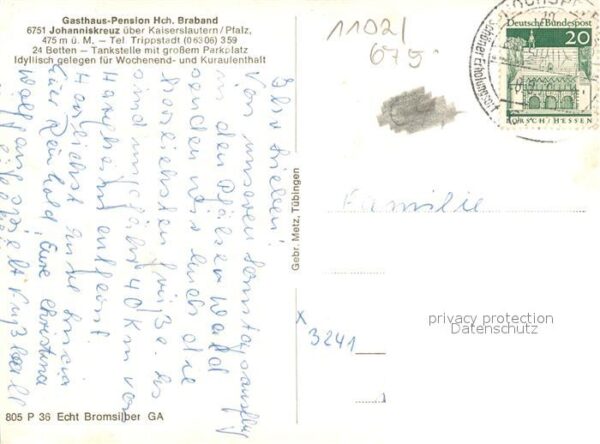 Gasthaus-Pension Hch. Braband
6751 Johanniskreuz über Kaiserslautern/Pfalz,
475 m ü. M. – Tel. Trippstadt (06306) 359
24 Betten – Tankstelle mit großem Parkplatz
Idyllisch gelegen für Wochenend- und Kuraulenthalt
11021
675
Deutsche Bundespost
20
LORSCH/HESSEN
Ihr Lieben!
Von unserem Sonntagsausflug
in den Pfälzer Wald
senden wir Euch die
herzlichsten Grüße. Es
sind ungefähr 40 km von
entfernt.
Herzlichst Eure
Euer Reinhold, Eure Christina
Wolfgang spielt Fußball
Gebr. Metz, Tübingen
Familie
privacy protection
Datenschutz
x 3241
805 P 36 Echt Bromsilber GA